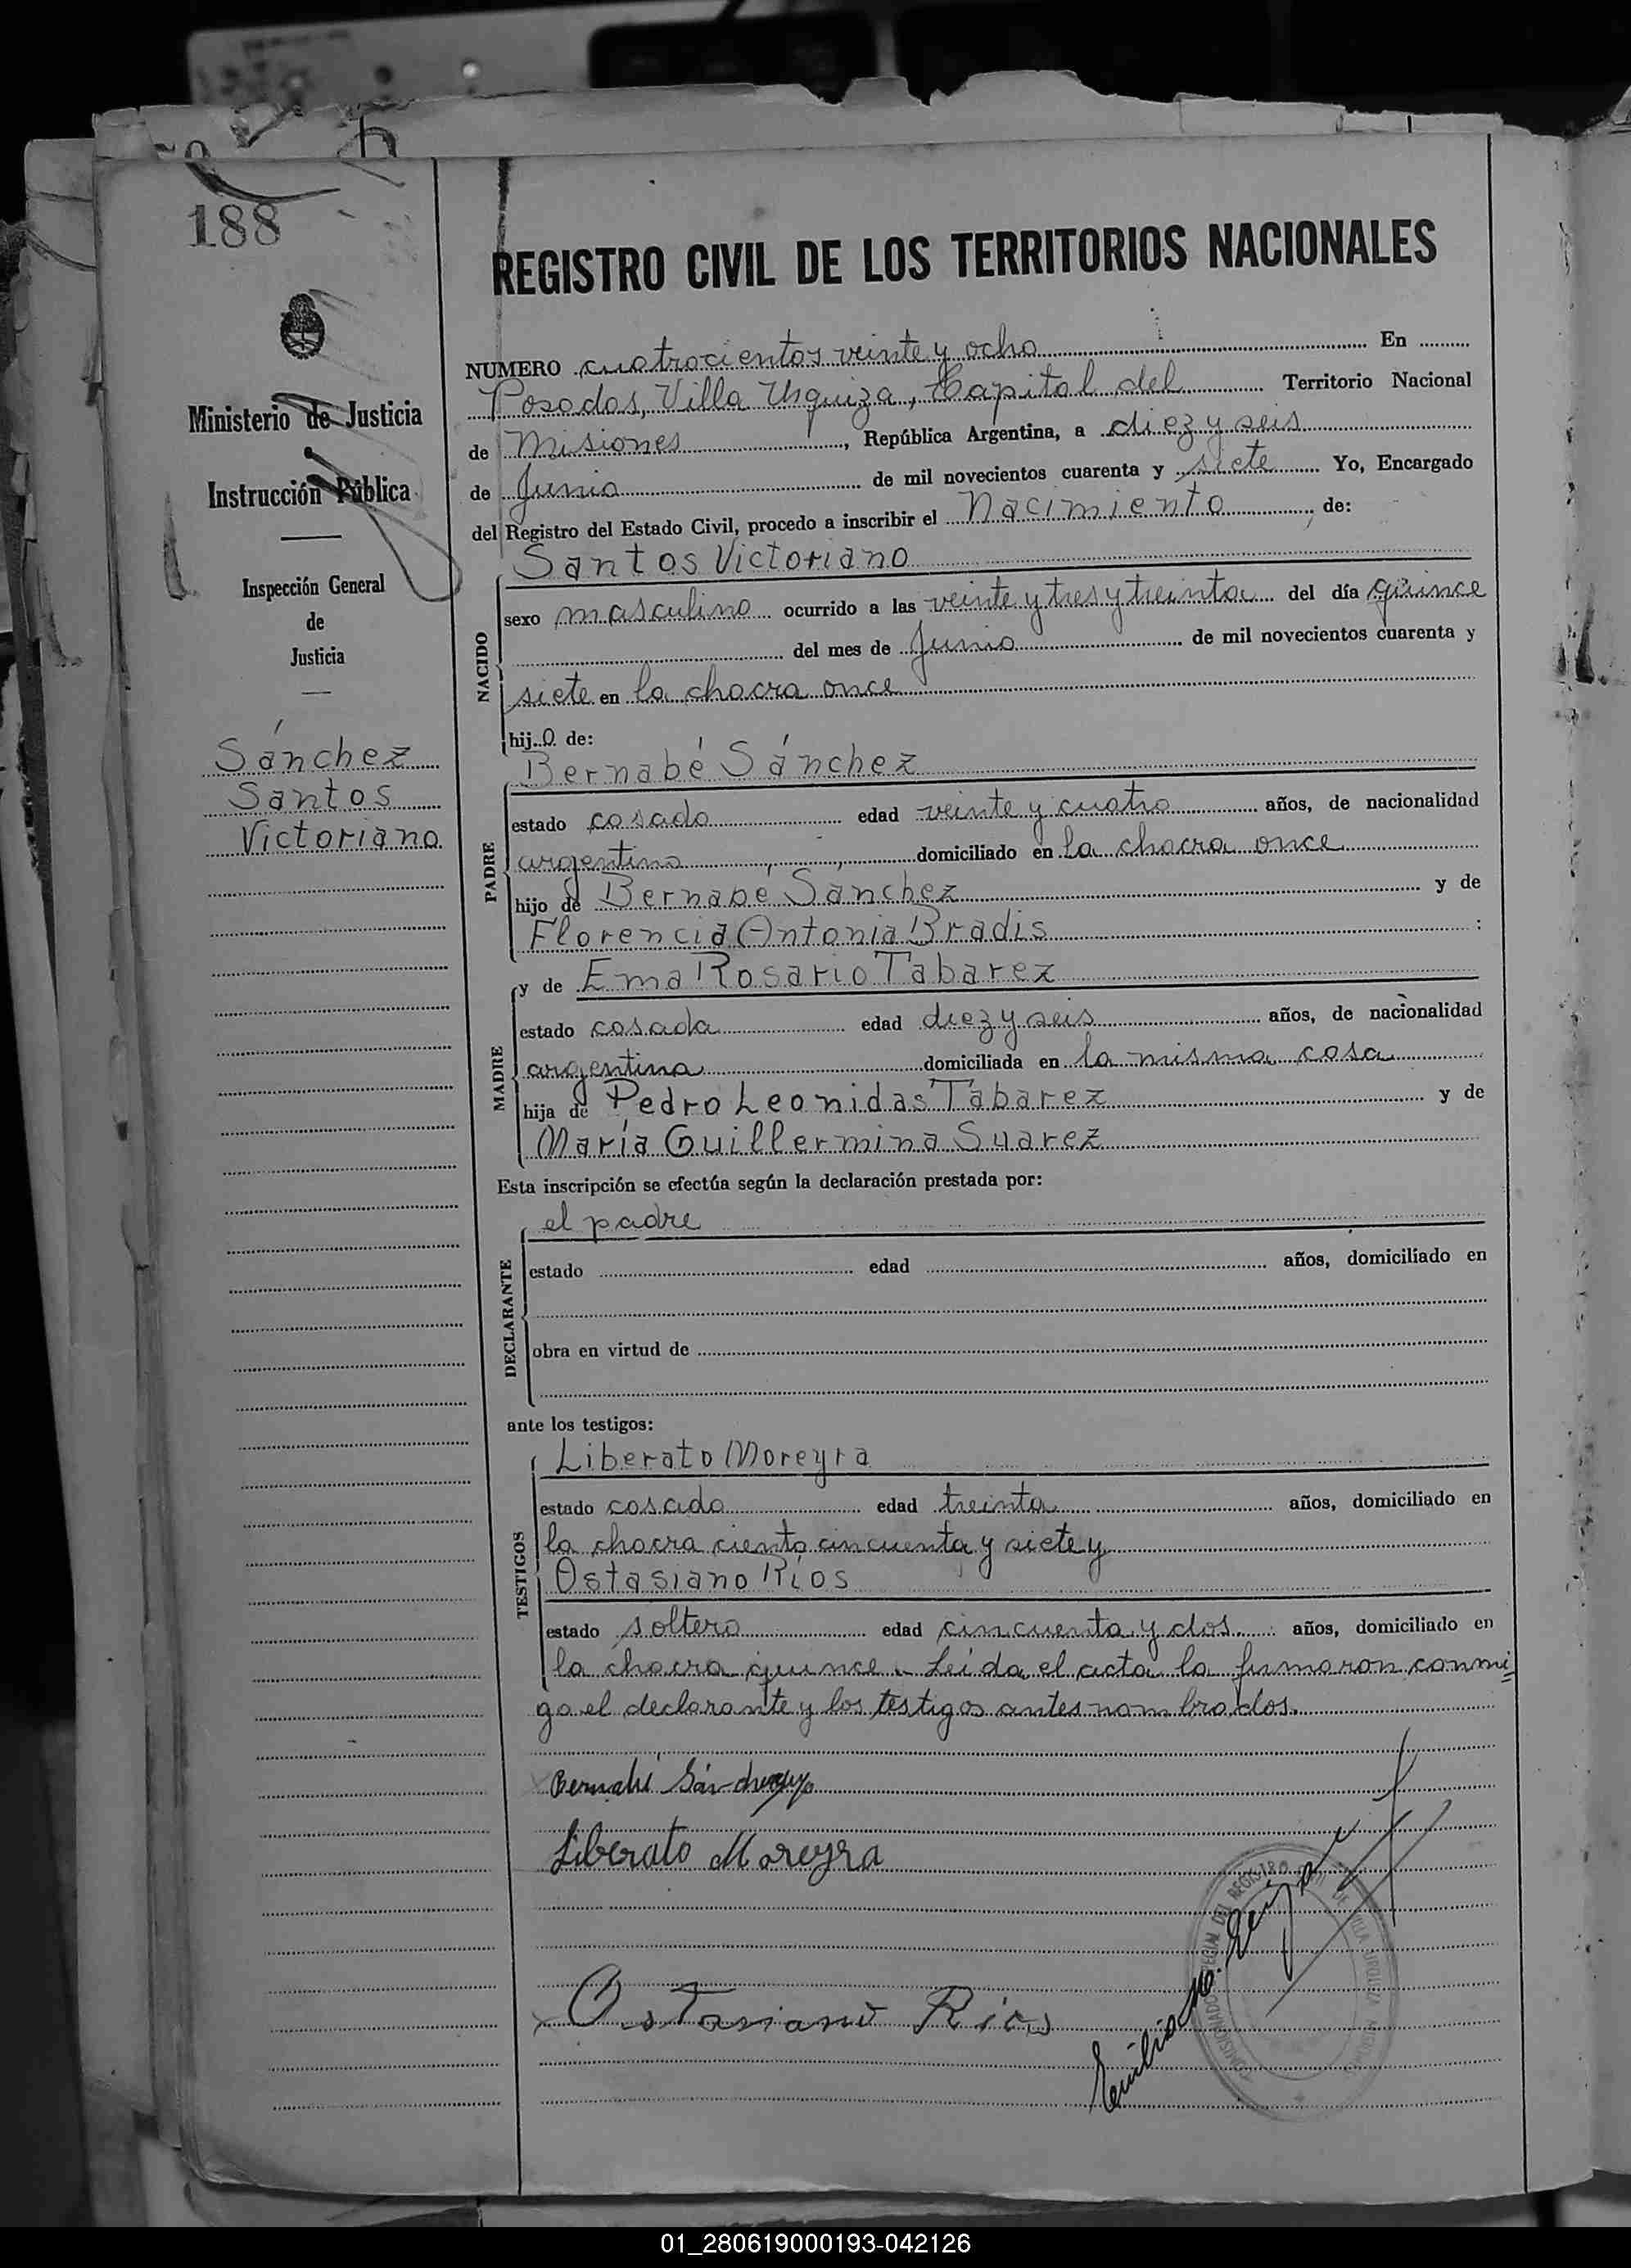 188
Ministerio de Justicia
Instrucción Pública
Inspección General
de
Justicia
Sánchez
Santos
Victoriano
REGISTRO CIVIL DE LOS TERRITORIOS NACIONALES
NUMERO cuatrocientos veinte y ocho En
Posadas, Villa Urquiza, Capital del Territorio Nacional
de Misiones, República Argentina, a diez y seis
de Junio de mil novecientos cuarenta y siete Yo, Encargado
del Registro del Estado Civil, procedo a inscribir el Nacimiento, de:
NACIDO
Santos Victoriano
sexo masculino ocurrido a las veinte y tres y treinta del día quince
del mes de Junio de mil novecientos cuarenta y
siete en la chacra once
hijo de:
PADRE
Bernabé Sánchez
estado casado edad veinte y cuatro años, de nacionalidad
argentino domiciliado en la chacra once
hijo de Bernabé Sánchez y de
Florencia Antonia Bradis :
MADRE
y de Ema Rosario Tabarez
estado casada edad diez y seis años, de nacionalidad
argentina domiciliada en la misma casa
hija de Pedro Leonidas Tabarez y de
María Guillermina Suarez
Esta inscripción se efectúa según la declaración prestada por:
DECLARANTE
el padre
estado edad años, domiciliado en
obra en virtud de
ante los testigos:
TESTIGOS
Liberato Moreyra
estado casado edad treinta años, domiciliado en
la chacra ciento cincuenta y siete y
Ostasiano Ríos
estado soltero edad cincuenta y dos años, domiciliado en
la chacra quince. Leída el acta la firmaron conmi=
go el declarante y los testigos antes nombrados.
Bernabé Sánchez
Liberato Moreyra
Ostasiano Rios
Emilio
01_280619000193-042126